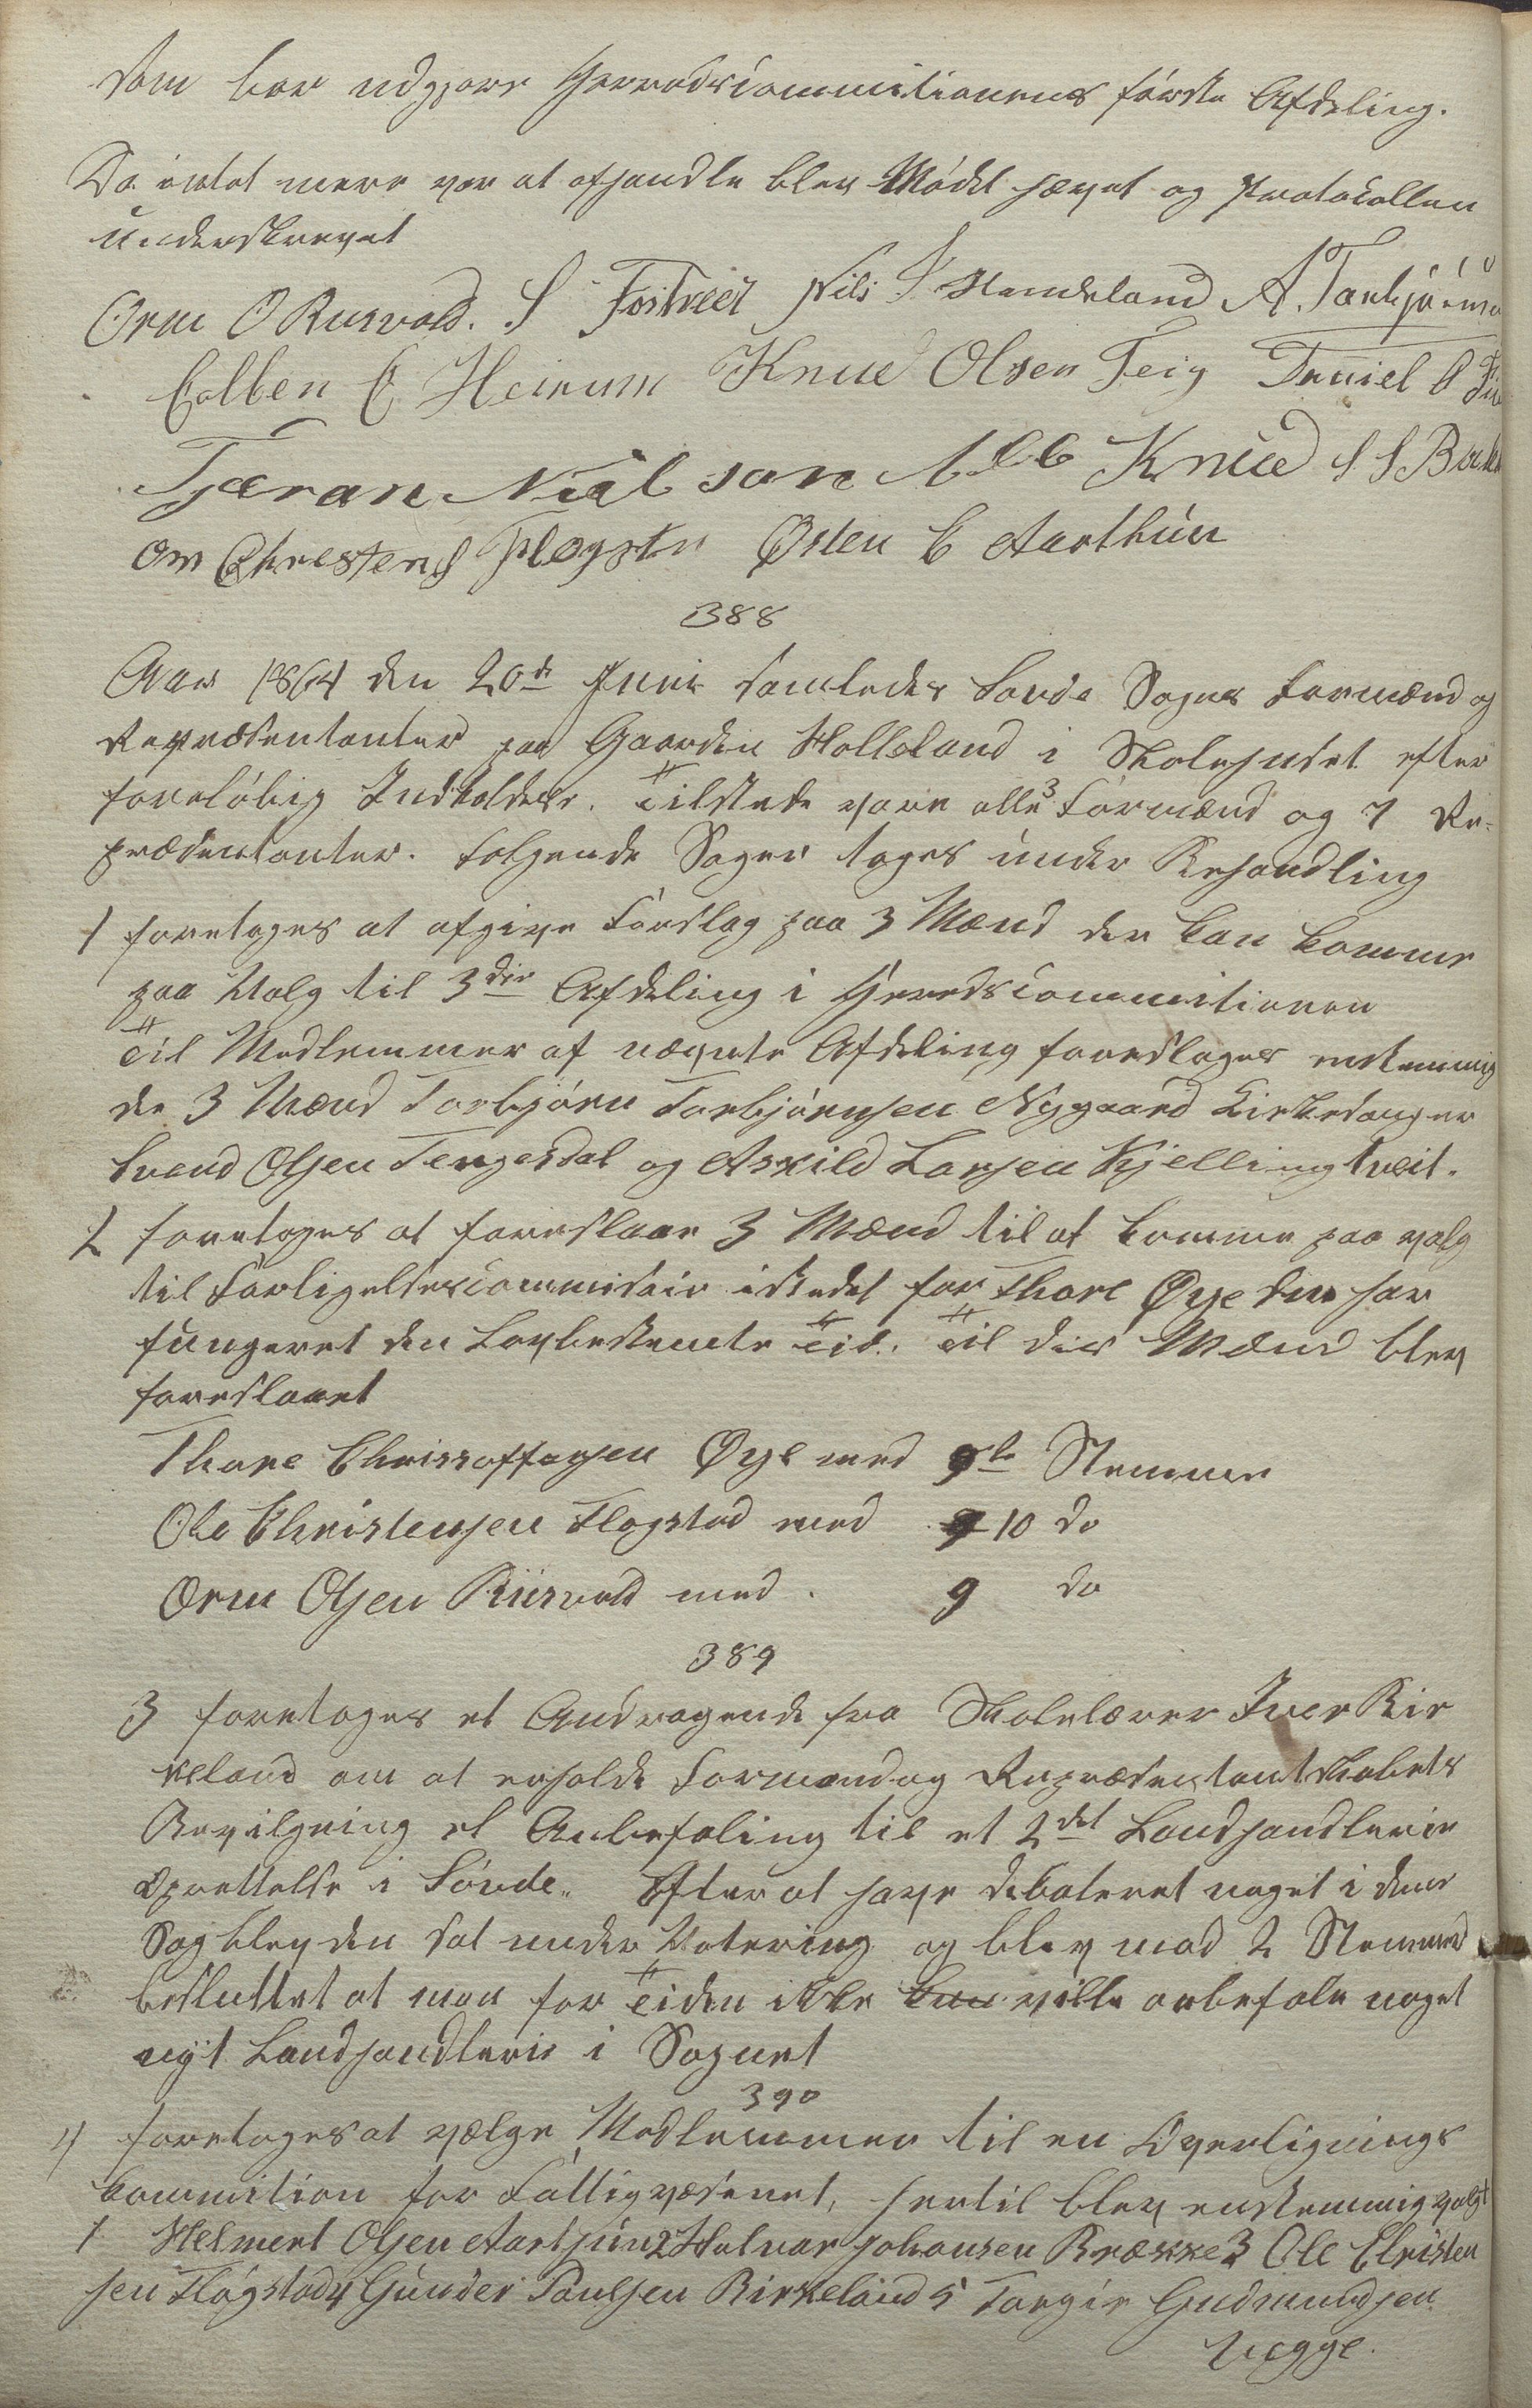 som bør udgjøre Herredscommitionens første Afdeling.
Da intet mere var at afhandle blev Mødet hævet og Protocollen
underskrevet
Orm O Rusvold. S Fostveit Nils S Handeland A. Torbjørns
Colben C Heirum Knud Olsen Teig Daniel O
Tjæran Niels son Knud S S Birke
Om Chrestens Flogstn Østen C Aarthun
388
Aar 1864 den 20de Juni samledes Sovde Sogns Formænd og
Repræsentanter paa Gaarden Hollsland i Skolehuset efter
foreløbig Indkaldelse. Tilstede vare alle 3 Formænd og 7 Re-
præsentanter. Følgende Sager toges under Behandling
1 foretoges at afgive Forslag paa 3 Mænd der kan komme
paa Valg til 3die Afdeling i Heredscommitionen
Til Medlemmer af nævnte Afdeling foreslages enstemmig
de 3 Mænd Torbjørn Torbjørnsen Nygaard Kirkesanger
Svend Olsen Tengesdal og Askild Larsen Kjellingtveit.
2 foretoges at foreslaae 3 Mænd til at komme paa valg
til Forligelsescommisair istedet for Thore Øye der har
fungeret den Lovbestemte Tid. Til dis Mænd blev
foreslaaet
Thore Christoffersen Øye med 9te Stemmer
Ole Christensen Flogstad med 9 10 do
Orm Olsen Riisvold med 9 do
389
3 foretoges et Andragende fra Skolelærer Iver Bir
keland om at erholde Formand og Repræsentantskabets
Bevilgning et Anbefaling til et 2det Landhandlerie
Oprettelse i Søvde. Efter at have debateret noget i denne
Sag blev den sat under Votering og blev med 2 Stemmer
besluttet at man for Tiden ikke kun ville anbefale noget
nyt Landhandlerie i Sognet
390
4 foretoges at vælge Medlemmer til en Overlignings
kommition for Fattigvæsenet, hertil blev enstemmig valgt
1 Helmert Olsen Aarthun 2 Halvor Johansen Brække 3 Ole Christen
sen Flogstad 4 Gunder Poulsen Birkeland 5 Torgir Gudmundsen
Vegge.